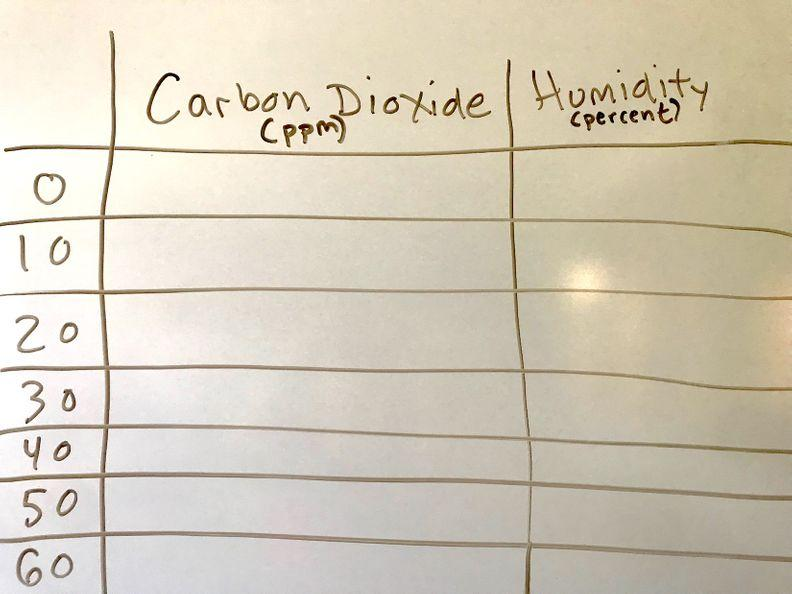 Carbon Dioxide Humidity
(ppm) (percent)
0
10
20
30
40
50
60